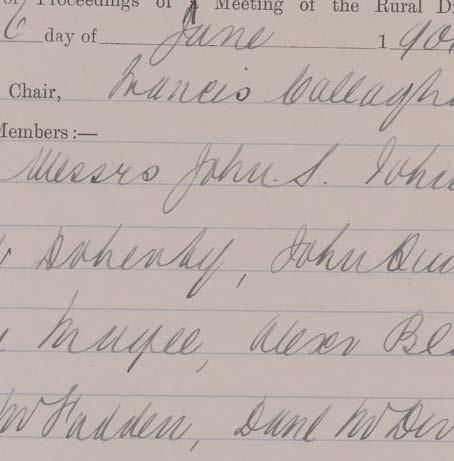 of Proceedings of a Meeting of the Rural Di
6 day of June 190
Chair, Francis Callagh
Members:—
Messrs John. S. John
Doherty, John Qui
Magee, Alexr Bl
McFadden, Danl McDev